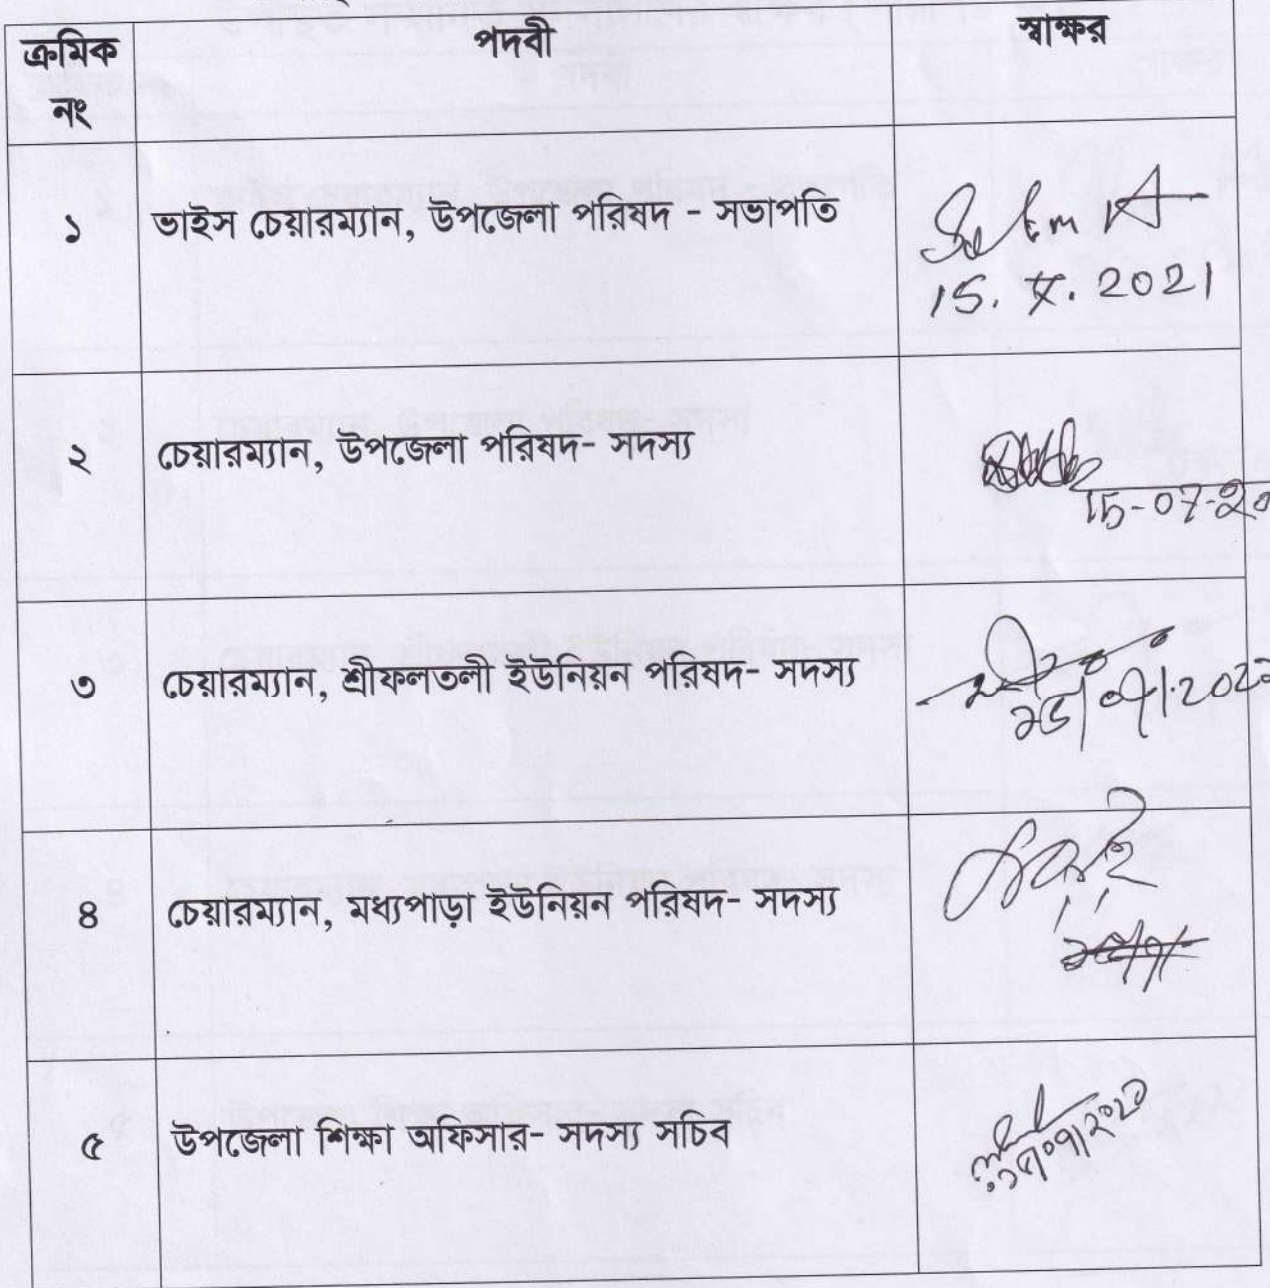 ক্রমিক নং পদবী স্বাক্ষর
১ ভাইস চেয়ারম্যান, উপজেলা পরিষদ - সভাপতি
15. 2021
২ চেয়ারম্যান, উপজেলা পরিষদ- সদস্য
15-07-20
৩ চেয়ারম্যান, শ্রীফলতলী ইউনিয়ন পরিষদ- সদস্য
৪ চেয়ারম্যান, মধ্যপাড়া ইউনিয়ন পরিষদ- সদস্য
৫ উপজেলা শিক্ষা অফিসার- সদস্য সচিব